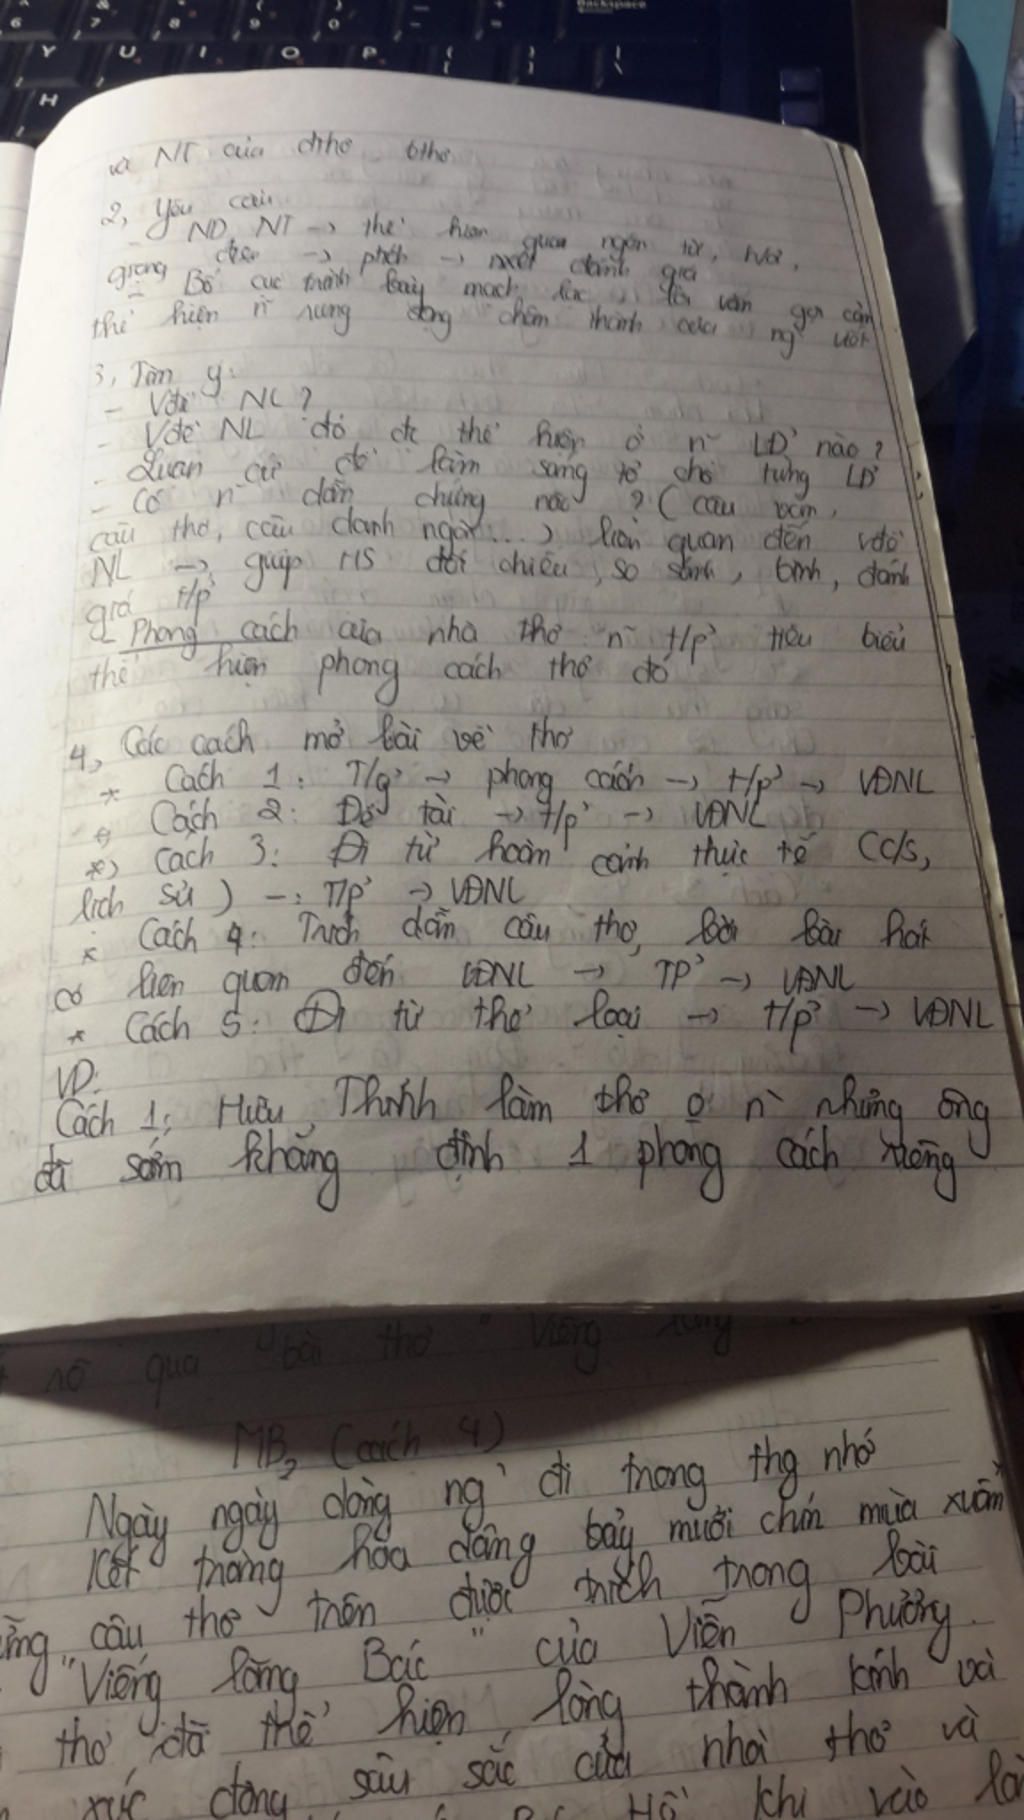 Backspace
6 7 8 9 0 - =
Y U I O P { }
H [ ] \
và NT của đthơ, bthơ
2, Yêu cầu
ND, NT → thể hiện qua ngôn từ, h/ả,
giọng điệu → ptích → nxét đánh giá
- Bố cục trình bày mạch lạc, lời văn gợi cảm
thể hiện n~ rung động chân thành của ng` viết
3, Tìm ý:
- Vđề NL?
- Vđề NL đó đc thể hiện ở n~ LĐ' nào?
- Luận cứ để làm sáng tỏ cho từng LĐ'
- Có n~ dẫn chứng nào ? (câu văn,
câu thơ, câu danh ngôn...) liên quan đến vđề
NL → giúp HS đối chiếu, so sánh, bình, đánh
giá t/p'
- Phong cách của nhà thơ n~ t/p' tiêu biểu
thể hiện phong cách thơ đó
4, Các cách mở bài về thơ
* Cách 1: T/g' → phong cách → t/p' → VĐNL
* Cách 2: Đề tài → t/p' → VĐNL
*) Cách 3: Đi từ hoàn cảnh thực tế (c/s,
lịch sử) → T/p' → VĐNL
* Cách 4: Trích dẫn câu thơ, lời bài hát
có liên quan đến VĐNL → TP' → VĐNL
* Cách 5: Đi từ thể loại → t/p' → VĐNL
VD:
Cách 1: Hữu Thỉnh làm thơ o n` nhưng ông
đã sớm khẳng định 1 phong cách riêng
nó qua "bài thơ "Viếng lăng
MB2 (cách 4)
Ngày ngày dòng ng` đi trong thg nhớ
Kết tràng hoa dâng bảy mươi chín mùa xuân"
câu thơ trên được trích trong bài
"Viếng lăng Bác" của Viễn Phương.
thơ đã thể hiện lòng thành kính và
xúc động sâu sắc của nhà thơ và
Hồ khi vào